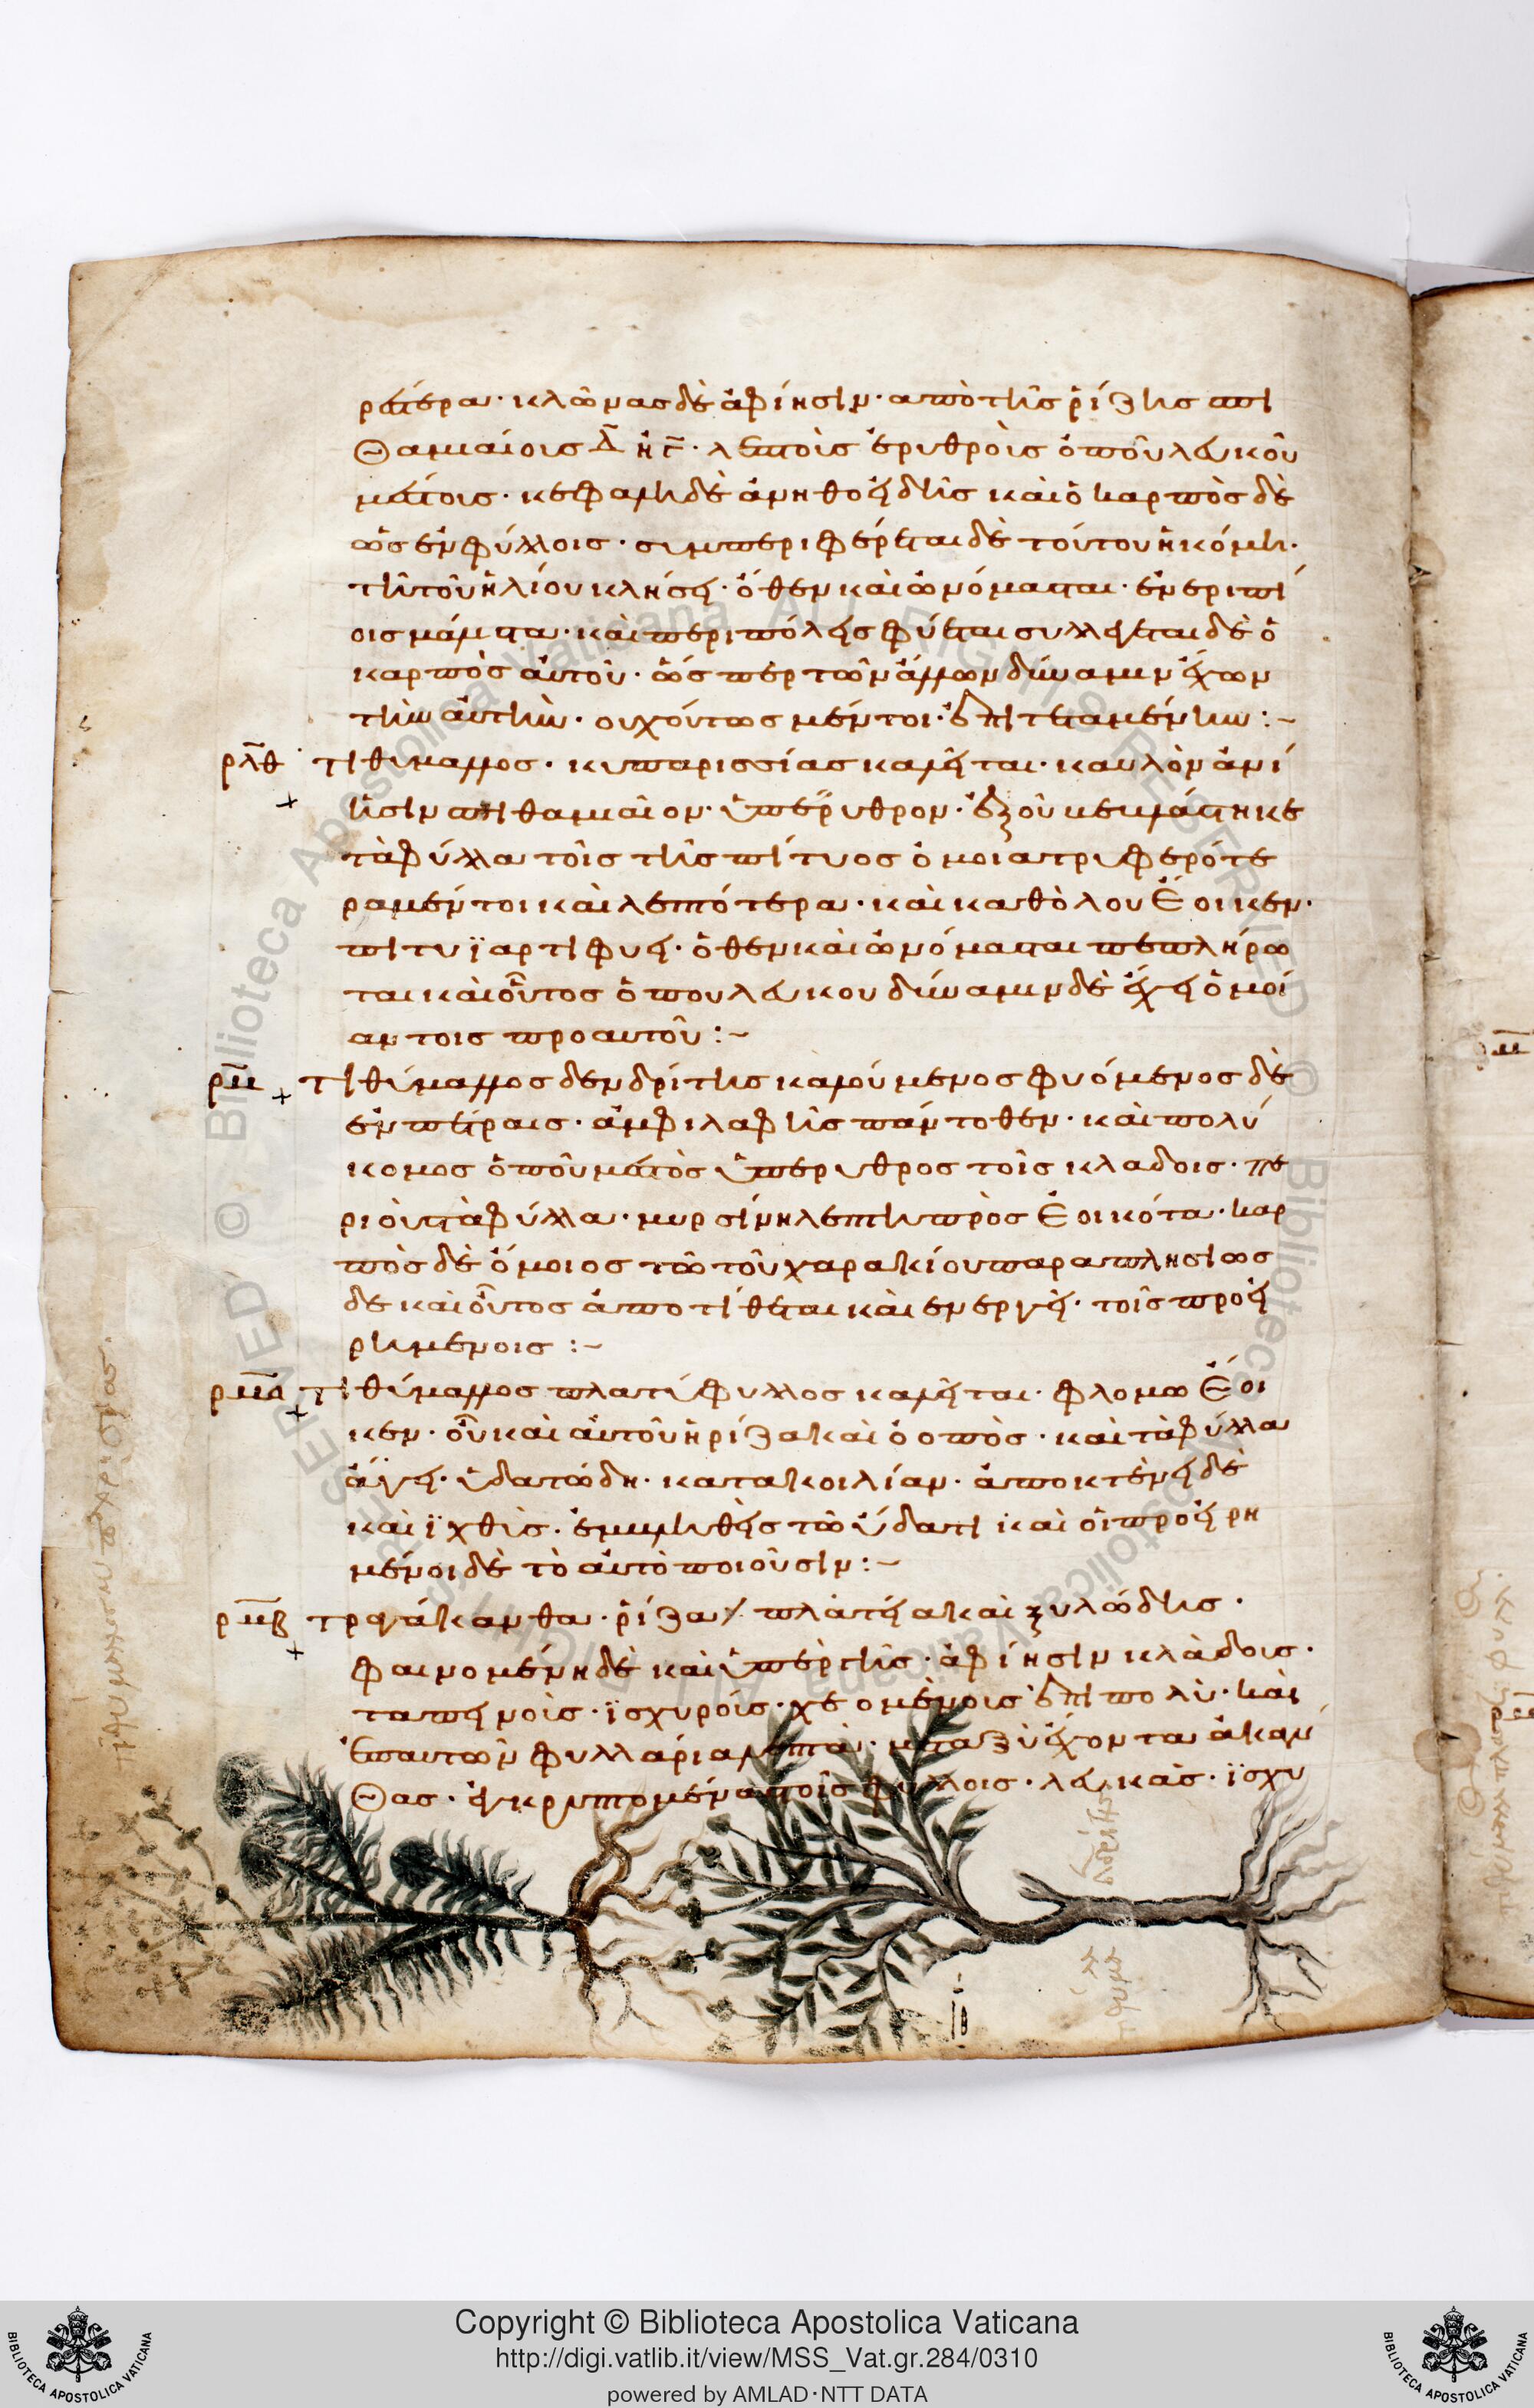 ραιότερα· κλῶνας δὲ ἀφίησιν· απὸ τῆς ῥίζης πι
θαμιαίοις Δ̄ ἢ Γ̄· λεπτοὶς ἐρυθροὶς ὀποῦ λευκοῦ
μεστοις· κεφαλὴ δὲ ἀνηθοειδὴς καὶ ὁ καρπὸς δὲ
ὡς ἐν φύλλοις· συμπεριφέρεται δὲ τούτου ἡ κόμη·
τῆ τοῦ ἡλίου κλήσει· ὅθεν καὶ ὠνόμασται· ἐν εριπί
οις μάλιστα· καὶ περι πόλεις φύεται συλλέγεται δὲ ὁ
καρπὸς αὐτοῦ· ὥς περ τῶν ἄλλων δύναμιν ἔχων
τὴν αὐτὴν· ουχ όντως μέντοι· ἐπιτεταμένην :~
ρλθ τιθυμαλλος· κυπαρισσίας καλεῖται· καυλὸν ἀνί
ησιν σπιθαμιαῖον· ὑπέρυθρον· ἐξ οῦ βεβλάστηκε
τὰ φύλλα τοῖς τῆς πίτυος ὁμοια τρυφερότε
ρα μέντοι καὶ λεπτότερα· καὶ καθὸλου ἔοικεν·
πιτυϊ αρτιφυει· ὅθεν καὶ ὠνόμασται πεπλήρω
ται καὶ οὗτος ὀπου λευκου δύναμιν δὲ ἔχει ὁμοί
αν τοις προ αυτοῦ :~
ρμ τιθύμαλλος δενδρίτης καλούμενος φυόμενος δὲ
ἐν πέτραις· ἀμφιλαφὴς πάντοθεν· καὶ πολύ
κομος ὀποῦ μεστὸς ὑπέρυθρος τοῖς κλαδοις· πε
ρι ὃν τὰ φύλλα· μυρσίνη λεπτὴ προσεοικότα· καρ
πὸς δὲ ὅμοιος τῶ τοῦ χαρακίου παραπλησίως
δε καὶ οὗτος ἀποτίθεται καὶ ενεργεῖ· τοῖς προει
ρημένοις :~
ρμα τιθύμαλλος πλατύφυλλος καλεῖται· φλομω ἔοι
κεν· οὗ καὶ αὐτοῦ ἡ ρίζα καὶ ὁ οπὸς· καὶ τὰ φύλλα
ἄγει· ὑδατώδη· κατα κοιλίαν· ἀποκτένει δὲ
καὶ ϊχθὺς· ἐμβληθεὶς τῶ ὕδατι καὶ οἱ προειρη
μένοι δὲ τὸ αὐτὸ ποιοῦσιν :~
ρμβ τραγάκανθα· ῥίζα πλατεῖα καὶ ξυλώδης·
φαινομένη δὲ καὶ ὑπὲρ γῆς· ἀφίησιν κλάδοις·
ταπεινοὶς· ϊσχυροίς· χεομένοις ἐπι πολὺ· καὶ
ἐπ αυτῶν φυλλάρια λεπτὰ· μεταξὺ ἔχοντα ἀκαν
θας· ἐγκρυπτομένας τοῖς φύλλοις· λευκὰς· ϊσχυ
Copyright © Biblioteca Apostolica Vaticana
http://digi.vatlib.it/view/MSS_Vat.gr.284/0310
powered by AMLAD·NTT DATA
BIBLIOTECA APOSTOLICA VATICANA
BIBLIOTECA APOSTOLICA VATICANA